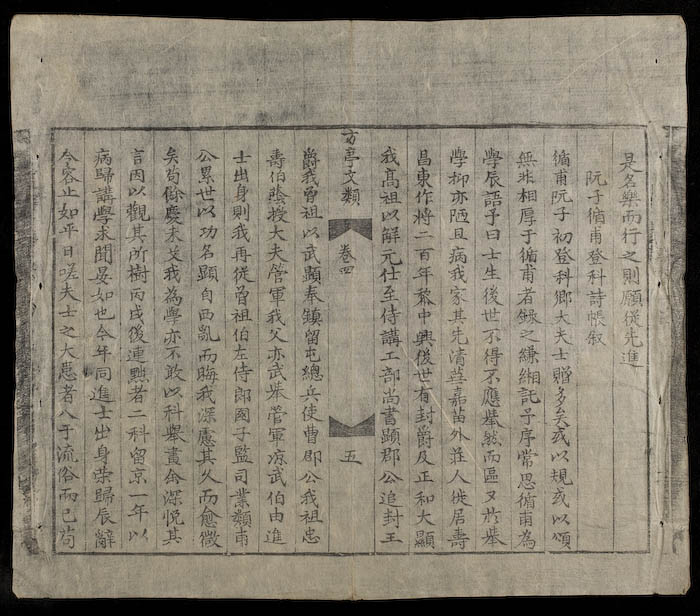 是名樂而行之則願從先進
阮子循甫登科詩帳敘
循甫阮子初登科鄉大夫士贈多矣或以規或以頌
無非相厚于循甫者録之縑緗託予序常思循甫為
學辰語予曰士生後世不得不應舉然而區又於舉
學抑亦陋且病我家其先清葩嘉苗外莊人徙居壽
昌東作將二百年黎中興後世有封爵及正和大顯
我高祖以解元仕至侍講工部尚書顕郡公追封王
方亭文類 卷四 五
爵我曾祖以武顯奉鎮留屯總兵使曹郡公我祖忠
壽伯蔭授大夫管軍我父亦武举管軍凉武伯由進
士出身則我再從曾祖伯左侍郎國子監司業類甫
公累世以功名顯自西亂而晦我深慮其久而愈微
矣苟餘慶未艾我為學亦不敢以科舉畫余深悅其
言因以觀其所樹丙戌後連黜者二科留京一年以
病歸講學求聞晏如也今年同進士出身荣歸辰辭
令容止如平日嗟夫士之大惡者入于流俗而已苟